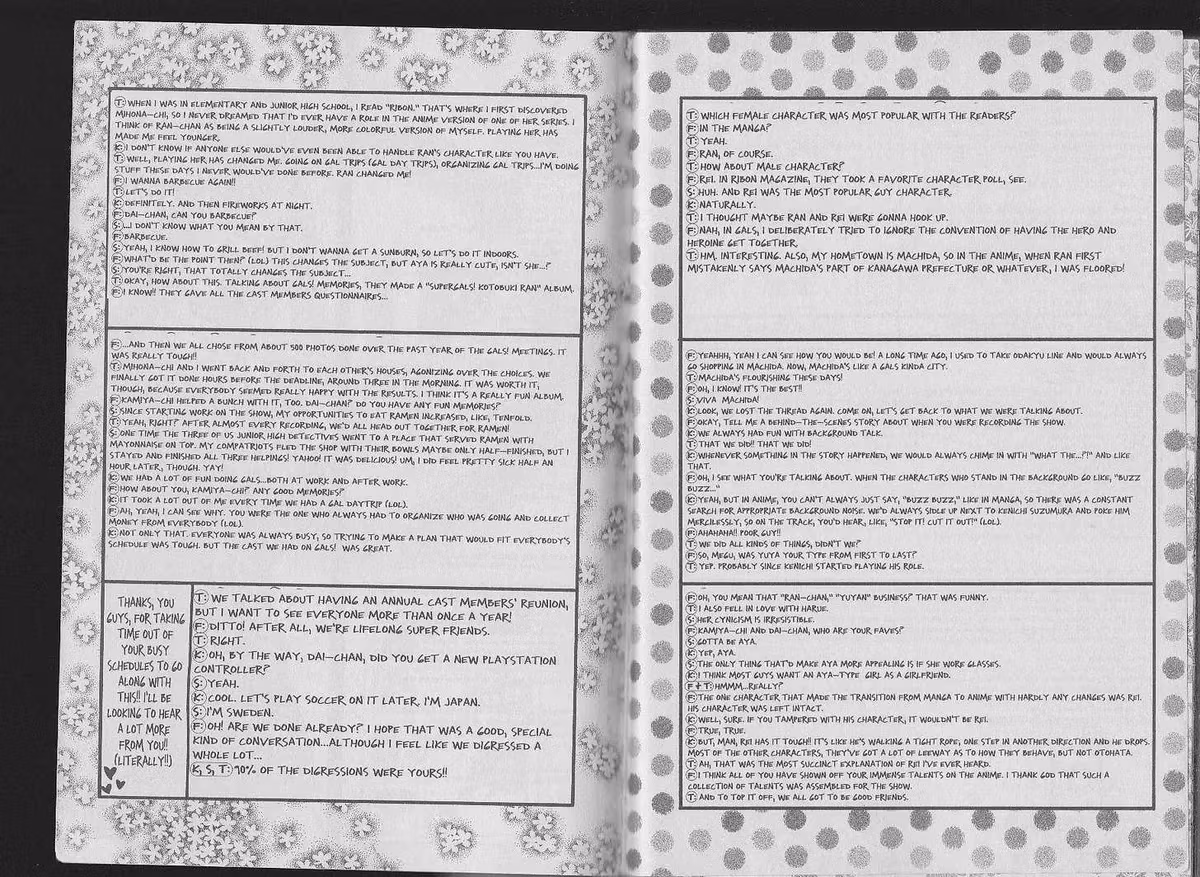 T: WHEN I WAS IN ELEMENTARY AND JUNIOR HIGH SCHOOL, I READ "RIBON." THAT'S WHERE I FIRST DISCOVERED
MIHONA-CHI, SO I NEVER DREAMED THAT I'D EVER HAVE A ROLE IN THE ANIME VERSION OF ONE OF HER SERIES. I
THINK OF RAN-CHAN AS BEING A SLIGHTLY LOUDER, MORE COLORFUL VERSION OF MYSELF. PLAYING HER HAS
MADE ME FEEL YOUNGER.
K: I DON'T KNOW IF ANYONE ELSE WOULD'VE EVEN BEEN ABLE TO HANDLE RAN'S CHARACTER LIKE YOU HAVE.
T: WELL, PLAYING HER HAS CHANGED ME. GOING ON GAL TRIPS (GAL DAY TRIPS), ORGANIZING GAL TRIPS...I'M DOING
STUFF THESE DAYS I NEVER WOULD'VE DONE BEFORE. RAN CHANGED ME!
F: I WANNA BARBECUE AGAIN!!
T: LET'S DO IT!
K: DEFINITELY. AND THEN FIREWORKS AT NIGHT.
F: DAI-CHAN, CAN YOU BARBECUE?
S: ...I DON'T KNOW WHAT YOU MEAN BY THAT.
F: BARBECUE.
S: YEAH, I KNOW HOW TO GRILL BEEF! BUT I DON'T WANNA GET A SUNBURN, SO LET'S DO IT INDOORS.
F: WHAT'D BE THE POINT THEN!? (LOL) THIS CHANGES THE SUBJECT, BUT AYA IS REALLY CUTE, ISN'T SHE...?
S: YOU'RE RIGHT, THAT TOTALLY CHANGES THE SUBJECT...
T: OKAY, HOW ABOUT THIS. TALKING ABOUT GALS! MEMORIES, THEY MADE A "SUPERGALS! KOTOBUKI RAN" ALBUM.
F: I KNOW!! THEY GAVE ALL THE CAST MEMBERS QUESTIONNAIRES...
F: ...AND THEN WE ALL CHOSE FROM ABOUT 500 PHOTOS DONE OVER THE PAST YEAR OF THE GALS! MEETINGS. IT
WAS REALLY TOUGH!!
T: MIHONA-CHI AND I WENT BACK AND FORTH TO EACH OTHER'S HOUSES, AGONIZING OVER THE CHOICES. WE
FINALLY GOT IT DONE HOURS BEFORE THE DEADLINE, AROUND THREE IN THE MORNING. IT WAS WORTH IT,
THOUGH, BECAUSE EVERYBODY SEEMED REALLY HAPPY WITH THE RESULTS. I THINK IT'S A REALLY FUN ALBUM.
F: KAMIYA-CHI HELPED A BUNCH WITH IT, TOO. DAI-CHAN? DO YOU HAVE ANY FUN MEMORIES?
S: SINCE STARTING WORK ON THE SHOW, MY OPPORTUNITIES TO EAT RAMEN INCREASED, LIKE, TENFOLD.
T: YEAH, RIGHT? AFTER ALMOST EVERY RECORDING, WE'D ALL HEAD OUT TOGETHER FOR RAMEN!
S: ONE TIME THE THREE OF US JUNIOR HIGH DETECTIVES WENT TO A PLACE THAT SERVED RAMEN WITH
MAYONNAISE ON TOP. MY COMPATRIOTS FLED THE SHOP WITH THEIR BOWLS MAYBE ONLY HALF-FINISHED, BUT I
STAYED AND FINISHED ALL THREE HELPINGS! YAHOO! IT WAS DELICIOUS! UM, I DID FEEL PRETTY SICK HALF AN
HOUR LATER, THOUGH. YAY!
K: WE HAD A LOT OF FUN DOING GALS...BOTH AT WORK AND AFTER WORK.
F: HOW ABOUT YOU, KAMIYA-CHI? ANY GOOD MEMORIES?
K: IT TOOK A LOT OUT OF ME EVERY TIME WE HAD A GAL DAYTRIP (LOL).
F: AH, YEAH, I CAN SEE WHY. YOU WERE THE ONE WHO ALWAYS HAD TO ORGANIZE WHO WAS GOING AND COLLECT
MONEY FROM EVERYBODY (LOL).
K: NOT ONLY THAT. EVERYONE WAS ALWAYS BUSY, SO TRYING TO MAKE A PLAN THAT WOULD FIT EVERYBODY'S
SCHEDULE WAS TOUGH. BUT THE CAST WE HAD ON GALS! WAS GREAT.
THANKS, YOU
GUYS, FOR TAKING
TIME OUT OF
YOUR BUSY
SCHEDULES TO GO
ALONG WITH
THIS!! I'LL BE
LOOKING TO HEAR
A LOT MORE
FROM YOU!!
(LITERALLY!!)
T: WE TALKED ABOUT HAVING AN ANNUAL CAST MEMBERS' REUNION,
BUT I WANT TO SEE EVERYONE MORE THAN ONCE A YEAR!
F: DITTO! AFTER ALL, WE'RE LIFELONG SUPER FRIENDS.
T: RIGHT.
K: OH, BY THE WAY, DAI-CHAN, DID YOU GET A NEW PLAYSTATION
CONTROLLER?
S: YEAH.
K: COOL. LET'S PLAY SOCCER ON IT LATER, I'M JAPAN.
S: I'M SWEDEN.
F: OH! ARE WE DONE ALREADY? I HOPE THAT WAS A GOOD, SPECIAL
KIND OF CONVERSATION...ALTHOUGH I FEEL LIKE WE DIGRESSED A
WHOLE LOT...
K, S, T: 90% OF THE DIGRESSIONS WERE YOURS!!
T: WHICH FEMALE CHARACTER WAS MOST POPULAR WITH THE READERS?
F: IN THE MANGA?
T: YEAH.
F: RAN, OF COURSE.
T: HOW ABOUT MALE CHARACTER?
F: REI. IN RIBON MAGAZINE, THEY TOOK A FAVORITE CHARACTER POLL, SEE.
S: HUH. AND REI WAS THE MOST POPULAR GUY CHARACTER.
K: NATURALLY.
T: I THOUGHT MAYBE RAN AND REI WERE GONNA HOOK UP.
F: NAH, IN GALS, I DELIBERATELY TRIED TO IGNORE THE CONVENTION OF HAVING THE HERO AND
HEROINE GET TOGETHER.
T: HM. INTERESTING. ALSO, MY HOMETOWN IS MACHIDA, SO IN THE ANIME, WHEN RAN FIRST
MISTAKENLY SAYS MACHIDA'S PART OF KANAGAWA PREFECTURE OR WHATEVER, I WAS FLOORED!
F: YEAHHH, YEAH I CAN SEE HOW YOU WOULD BE! A LONG TIME AGO, I USED TO TAKE ODAKYU LINE AND WOULD ALWAYS
GO SHOPPING IN MACHIDA. NOW, MACHIDA'S LIKE A GALS KINDA CITY.
T: MACHIDA'S FLOURISHING THESE DAYS!
F: OH, I KNOW! IT'S THE BEST!!
S: VIVA MACHIDA!
K: LOOK, WE LOST THE THREAD AGAIN. COME ON, LET'S GET BACK TO WHAT WE WERE TALKING ABOUT.
F: OKAY, TELL ME A BEHIND-THE-SCENES STORY ABOUT WHEN YOU WERE RECORDING THE SHOW.
K: WE ALWAYS HAD FUN WITH BACKGROUND TALK.
T: THAT WE DID!! THAT WE DID!
K: WHENEVER SOMETHING IN THE STORY HAPPENED, WE WOULD ALWAYS CHIME IN WITH "WHAT THE...?!" AND LIKE
THAT.
F: OH, I SEE WHAT YOU'RE TALKING ABOUT. WHEN THE CHARACTERS WHO STAND IN THE BACKGROUND GO LIKE, "BUZZ
BUZZ..."
K: YEAH, BUT IN ANIME, YOU CAN'T ALWAYS JUST SAY, "BUZZ BUZZ," LIKE IN MANGA, SO THERE WAS A CONSTANT
SEARCH FOR APPROPRIATE BACKGROUND NOISE. WE'D ALWAYS SIDLE UP NEXT TO KENICHI SUZUMURA AND POKE HIM
MERCILESSLY, SO ON THE TRACK, YOU'D HEAR, LIKE, "STOP IT! CUT IT OUT!" (LOL).
F: AHAHAHA!! POOR GUY!!
T: WE DID ALL KINDS OF THINGS, DIDN'T WE?
F: SO, MEGU, WAS YUYA YOUR TYPE FROM FIRST TO LAST?
T: YEP. PROBABLY SINCE KENICHI STARTED PLAYING HIS ROLE.
F: OH, YOU MEAN THAT "RAN-CHAN," "YUYAN" BUSINESS? THAT WAS FUNNY.
T: I ALSO FELL IN LOVE WITH HARUE.
S: HER CYNICISM IS IRRESISTIBLE.
F: KAMIYA-CHI AND DAI-CHAN, WHO ARE YOUR FAVES?
S: GOTTA BE AYA.
K: YEP, AYA.
S: THE ONLY THING THAT'D MAKE AYA MORE APPEALING IS IF SHE WORE GLASSES.
K: I THINK MOST GUYS WANT AN AYA-TYPE GIRL AS A GIRLFRIEND.
F + T: HMMM...REALLY?
F: THE ONE CHARACTER THAT MADE THE TRANSITION FROM MANGA TO ANIME WITH HARDLY ANY CHANGES WAS REI.
HIS CHARACTER WAS LEFT INTACT.
K: WELL, SURE. IF YOU TAMPERED WITH HIS CHARACTER, IT WOULDN'T BE REI.
F: TRUE, TRUE.
K: BUT, MAN, REI HAS IT TOUGH! IT'S LIKE HE'S WALKING A TIGHT ROPE, ONE STEP IN ANOTHER DIRECTION AND HE DROPS.
MOST OF THE OTHER CHARACTERS, THEY'VE GOT A LOT OF LEEWAY AS TO HOW THEY BEHAVE, BUT NOT OTOHATA.
T: AH, THAT WAS THE MOST SUCCINCT EXPLANATION OF REI I'VE EVER HEARD.
F: I THINK ALL OF YOU HAVE SHOWN OFF YOUR IMMENSE TALENTS ON THE ANIME. I THANK GOD THAT SUCH A
COLLECTION OF TALENTS WAS ASSEMBLED FOR THE SHOW.
T: AND TO TOP IT OFF, WE ALL GOT TO BE GOOD FRIENDS.